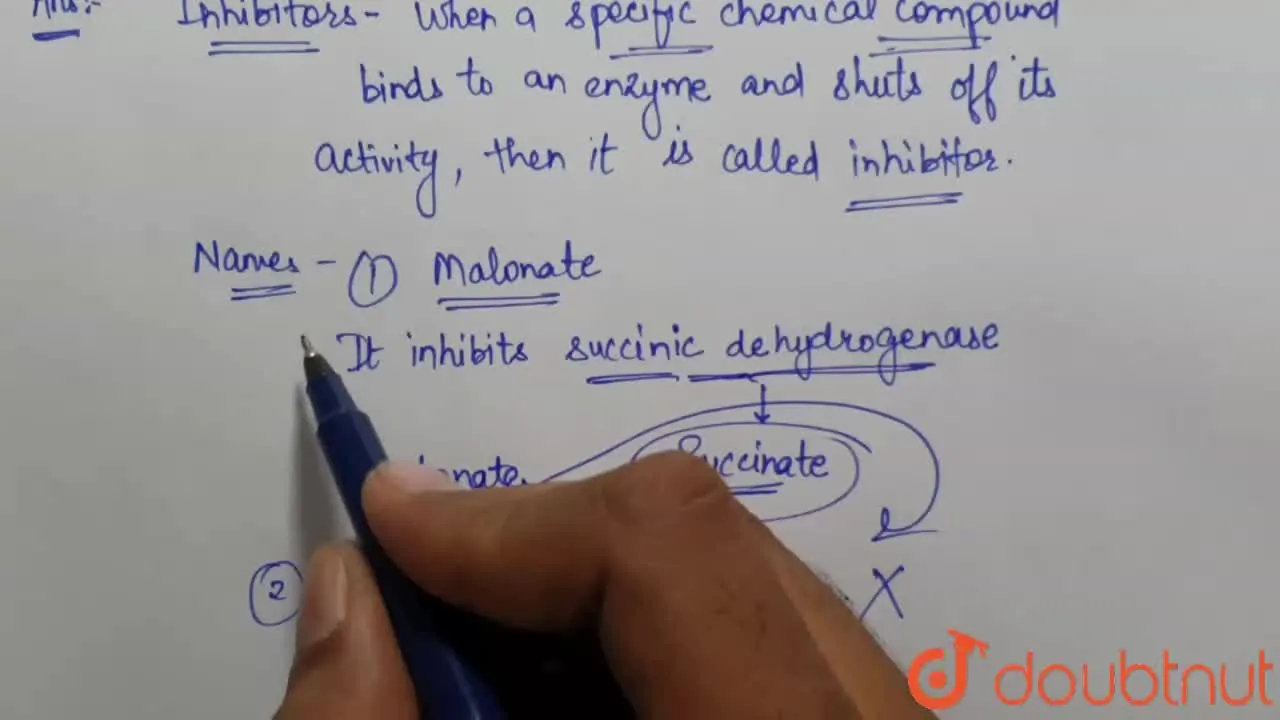 Ans:-
Inhibitors - When a specific chemical compound
binds to an enzyme and shuts off its
activity, then it is called inhibitor.
Names - ① Malonate
It inhibits succinic dehydrogenase
Succinate
②
X
doubtnut